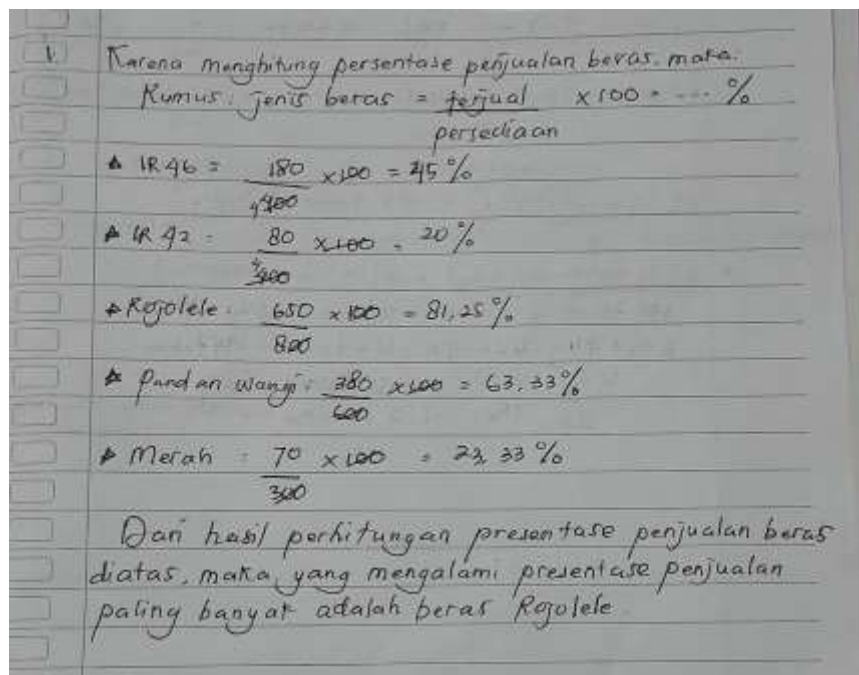 1. Karena menghitung persentase penjualan beras. maka.
Rumus: jenis beras = terjual x 100 = ... %
persediaan
IR 46 = 180 x 100 = 45 %
400
IR 42 = 80 x 100 = 20 %
400
Rojolele = 650 x 100 = 81,25 %
800
Pandan wangi = 380 x 100 = 63,33 %
600
Merah = 70 x 100 = 23,33 %
300
Dari hasil perhitungan presentase penjualan beras
diatas, maka, yang mengalami presentase penjualan
paling banyak adalah beras Rojolele.